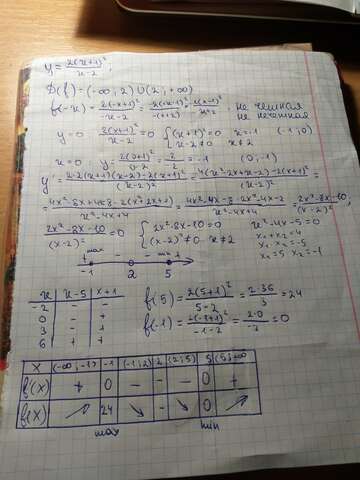 y = 2(x+1)²/x-2
D(f) = (-∞; 2) U (2; +∞)
f(-x) = 2(-x+1)²/-x-2 = 
не четная
не нечетная
y=0 2(x+1)²/x-2 = 0 { (x+1)²=0 x=-1 (-1; 0)
x-2≠0 x≠2
x=0 : y = 2(0+1)²/0-2 = 2/-2 = -1 (0; -1)
y' = 2·2(x+1)(x-2)-2(x+1)²/(x-2)² = 4(x²-2x+x-2)-2(x+1)²/(x-2)² =
= 4x²-4x-8-2x²-4x-2/x²-4x+4 = 2x²-8x-10/(x-2)²
2x²-8x-10/(x-2)² = 0 { 2x²-8x-10=0 x²-4x-5=0
(x-2)²≠0 x≠2 x₁+x₂=4
x₁·x₂=-5
x₁=5 x₂=-1
+ max - - min +
-1 2 5
x x-5 x+1
-2 - -
0 - +
3 - +
6 + +
f(5) = 2(5+1)²/5-2 = 2·36/3 = 24
f(-1) = 2(-1+1)²/-1-2 = 2·0/-3 = 0
x (-∞; -1) -1 (-1; 2) 2 (2; 5) 5 (5; +∞)
f'(x) + 0 - - - 0 +
f(x) ↗ 24 ↘ - ↘ 0 ↗
max min